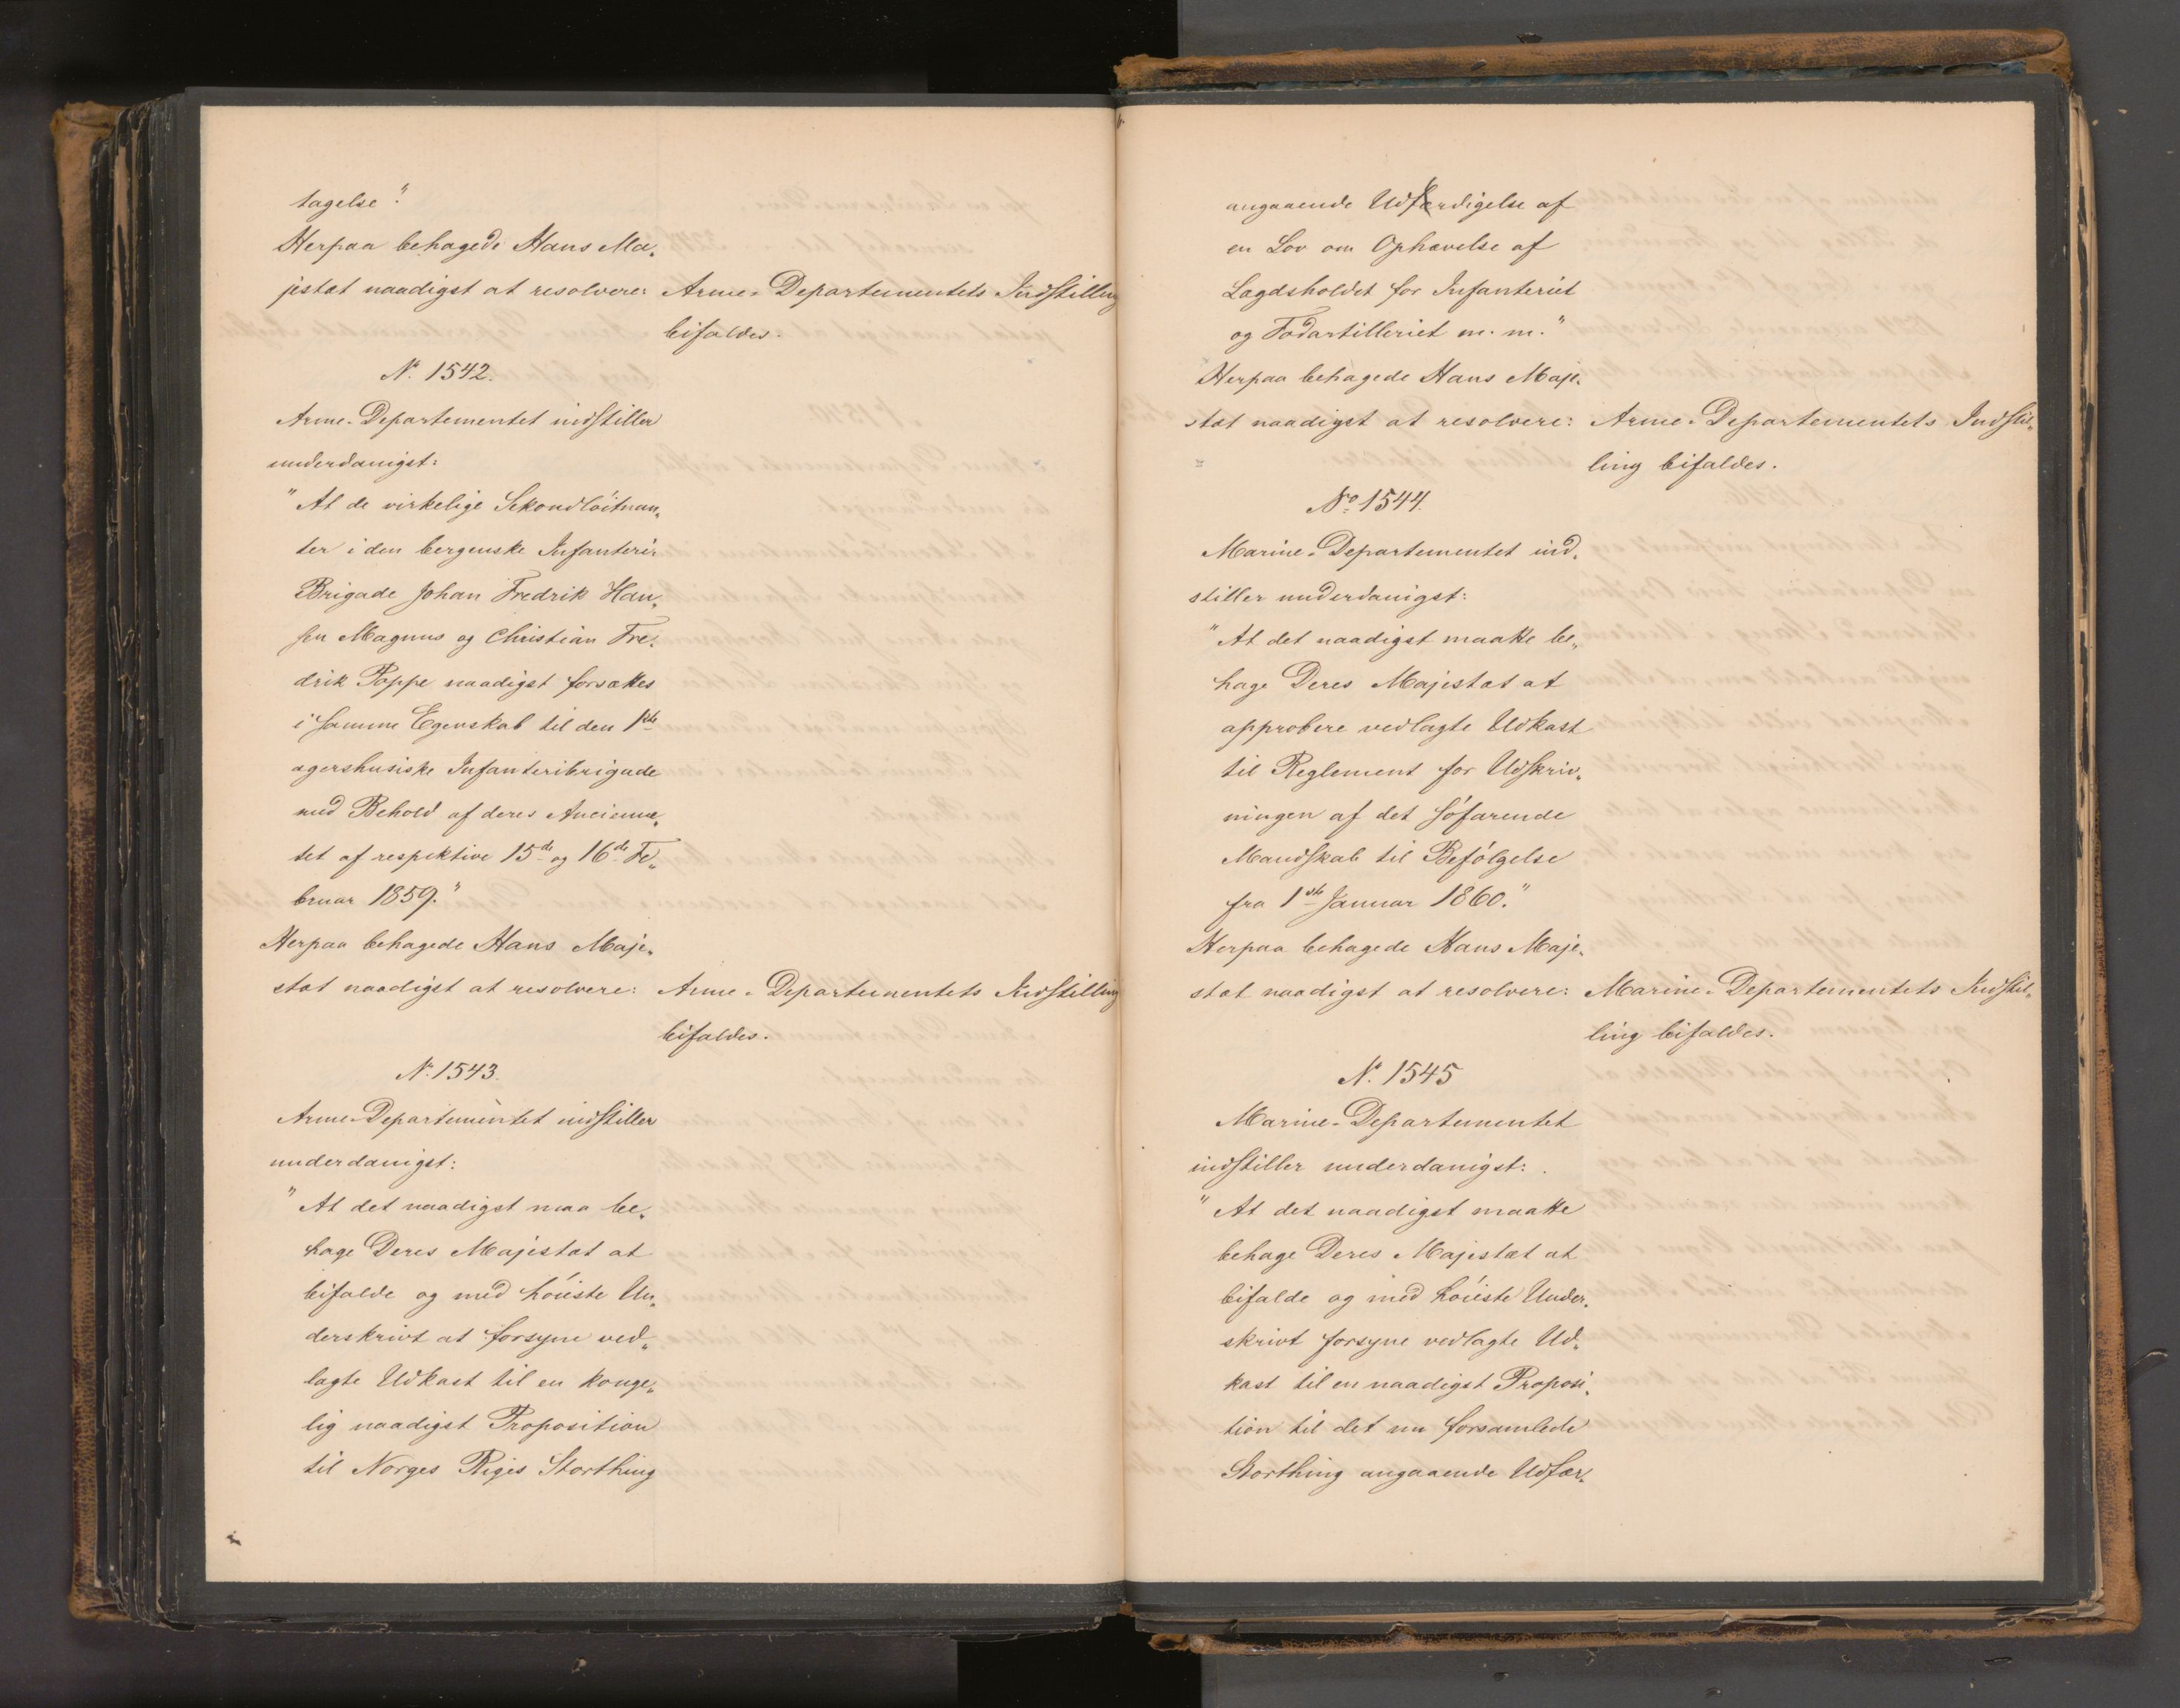 tagelse".
Herpaa behagede Hans Ma„
jestæt naadigst at resolvere: Arme-Departementets Indstilling
bifaldes.
No. 1542.
Arme-Departementet indstiller
underdanigst:
"At de virkelige Sekondlöitnan„
ter i den bergenske Infanteri-
Brigade Johan Fredrik Han„
sen Magnus og Christian Fre„
drik Poppe naadigst forsættes
i samme Egenskab til den 1ste
agershusiske Infanteribrigade
med Behold af deres Ancienne„
tet af respektive 15de og 16de Fe„
bruar 1859."
Herpaa behagede Hans Maje„
stæt naadigst at resolvere: Arme-Departementets Indstilling
bifaldes.
No. 1543.
Arme-Departementet indstiller
underdanigst:
"At det naadigst maa be„
hage Deres Majestæt at
bifalde og med höieste Un„
derskrivt at forsyne ved„
lagte Udkast til en konge„
lig naadigst Proposition
til Norges Riges Storthing
angaaende Udfærdigelse af
en Lov om Ophævelse af
Lægdsholdet for Infanteriet
og Fodartilleriet m. m."
Herpaa behagede Hans Maje„
stæt naadigst at resolvere: Arme-Departementets Indstil„
ling bifaldes.
No. 1544.
Marine-Departementet ind„
stiller underdanigst:
"At det naadigst maatte be„
hage Deres Majestæt at
approbere vedlagte Udkast
til Reglement for Udskriv„
ningen af det söfarende
Mandskab til Befölgelse
fra 1ste Januar 1860."
Herpaa behagede Hans Maje„
stæt naadigst at resolvere: Marine-Departementets Indstil„
ling bifaldes.
No. 1545
Marine-Departementet
indstiller underdanigst:
"At det naadigst maatte
behage Deres Majestæt at
bifalde og med höieste Under„
skrivt forsyne vedlagte Ud„
kast til en naadigst Proposi„
tion til det nu forsamlede
Storthing angaaende Udfær„